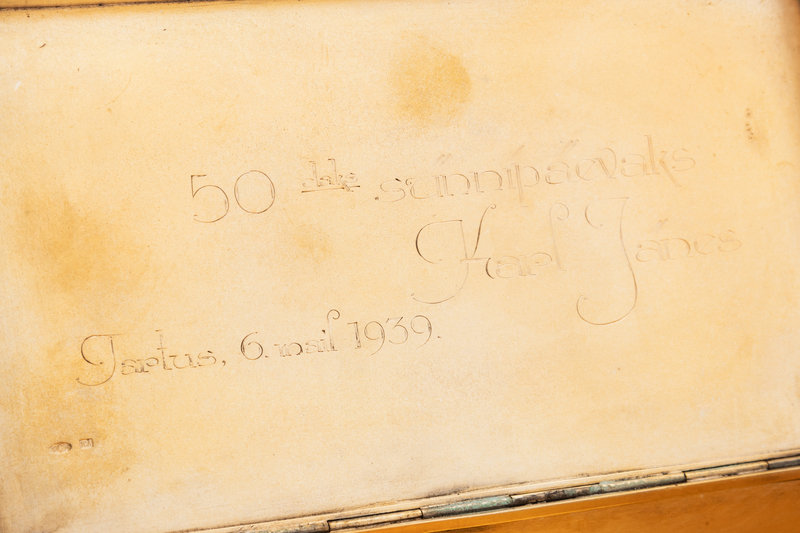 50 -dks sünnipäevaks
Karl Jänes
Tartus, 6. mail 1939.